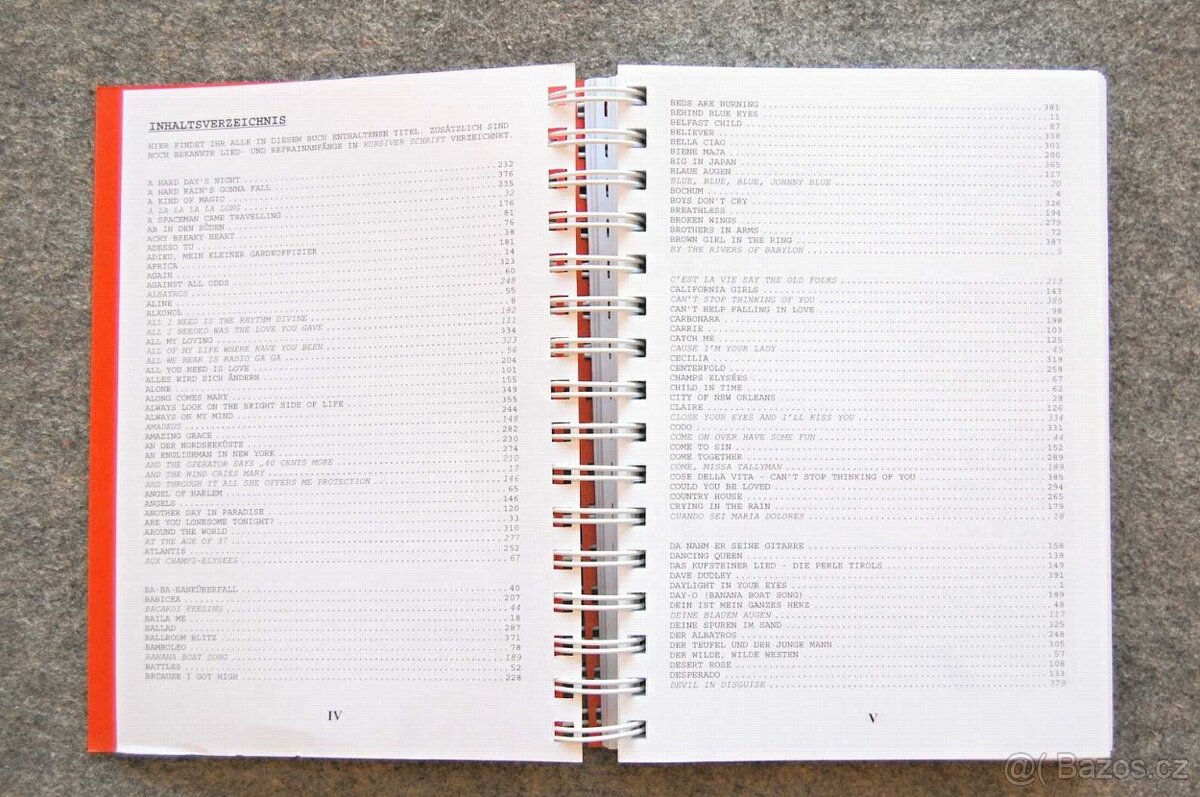 INHALTSVERZEICHNIS
HIER FINDET IHR ALLE IN DIESEM BUCH ENTHALTENEN TITEL. ZUSÄTZLICH SIND
NOCH BEKANNTE LIED- UND REFRAINANFÄNGE IN KURSIVER SCHRIFT VERZEICHNET.
A HARD DAY'S NIGHT 232
A HARD RAIN'S GONNA FALL 376
A KIND OF MAGIC 235
A LA LA LA LA LONG 32
A SPACEMAN CAME TRAVELLING 176
AB IN DEN SÜDEN 81
ACHY BREAKY HEART 76
ADESSO TU 38
ADIEU, MEIN KLEINER GARDEOFFIZIER 181
AFRICA 14
AGAIN 323
AGAINST ALL ODDS 60
ALBATROS 248
ALINE 55
ALKOHOL 8
ALL I NEED IS THE RHYTHM DIVINE 182
ALL I NEEDED WAS THE LOVE YOU GAVE 111
ALL MY LOVING 334
ALL OF MY LIFE WHERE HAVE YOU BEEN 323
ALL WE HEAR IS RADIO GA GA 56
ALL YOU NEED IS LOVE 204
ALLES WIRD SICH ÄNDERN 101
ALONE 155
ALONG COMES MARY 349
ALWAYS LOOK ON THE BRIGHT SIDE OF LIFE 355
ALWAYS ON MY MIND 244
AMADEUS 148
AMAZING GRACE 282
AN DER NORDSEEKÜSTE 230
AN ENGLISHMAN IN NEW YORK 274
AND THE OPERATOR SAYS „40 CENTS MORE 210
AND THE WIND CRIES MARY 17
AND THROUGH IT ALL SHE OFFERS ME PROTECTION 146
ANGEL OF HARLEM 65
ANGELS 146
ANOTHER DAY IN PARADISE 120
ARE YOU LONESOME TONIGHT? 33
AROUND THE WORLD 310
AT THE AGE OF 37 277
ATLANTIS 252
AUX CHAMPS-ELYSÉES 67
BA-BA-BANKÜBERFALL 40
BABICKA 207
BACARDI FEELING 44
BAILA ME 18
BALLAD 287
BALLROOM BLITZ 371
BAMBOLEO 78
BANANA BOAT SONG 189
BATTLES 52
BECAUSE I GOT HIGH 228
IV
BEDS ARE BURNING 381
BEHIND BLUE EYES 11
BELFAST CHILD 87
BELIEVER 338
BELLA CIAO 301
BIENE MAJA 200
BIG IN JAPAN 365
BLAUE AUGEN 117
BLUE, BLUE, BLUE, JOHNNY BLUE 20
BOCHUM 4
BOYS DON'T CRY 326
BREATHLESS 194
BROKEN WINGS 279
BROTHERS IN ARMS 72
BROWN GIRL IN THE RING 387
BY THE RIVERS OF BABYLON 5
C'EST LA VIE SAY THE OLD FOLKS 213
CALIFORNIA GIRLS 143
CAN'T STOP THINKING OF YOU 385
CAN'T HELP FALLING IN LOVE 98
CARBONARA 198
CARRIE 103
CATCH ME 125
CAUSE I'M YOUR LADY 45
CECILIA 319
CENTERFOLD 258
CHAMPS ELYSÉES 67
CHILD IN TIME 62
CITY OF NEW ORLEANS 28
CLAIRE 126
CLOSE YOUR EYES AND I'LL KISS YOU 334
CODO 331
COME ON OVER HAVE SOME FUN 44
COME TO SIN 152
COME TOGETHER 289
COME, MISSA TALLYMAN 189
COSE DELLA VITA - CAN'T STOP THINKING OF YOU 385
COULD YOU BE LOVED 294
COUNTRY HOUSE 265
CRYING IN THE RAIN 179
CUANDO SEI MARIA DOLORES 18
DA NAHM ER SEINE GITARRE 158
DANCING QUEEN 138
DAS KUFSTEINER LIED - DIE PERLE TIROLS 149
DAVE DUDLEY 391
DAYLIGHT IN YOUR EYES 1
DAY-O (BANANA BOAT SONG) 189
DEIN IST MEIN GANZES HERZ 48
DEINE BLAUEN AUGEN 117
DEINE SPUREN IM SAND 325
DER ALBATROS 248
DER TEUFEL UND DER JUNGE MANN 305
DER WILDE, WILDE WESTEN 57
DESERT ROSE 108
DESPERADO 133
DEVIL IN DISGUISE 379
V
@( Bazos.cz